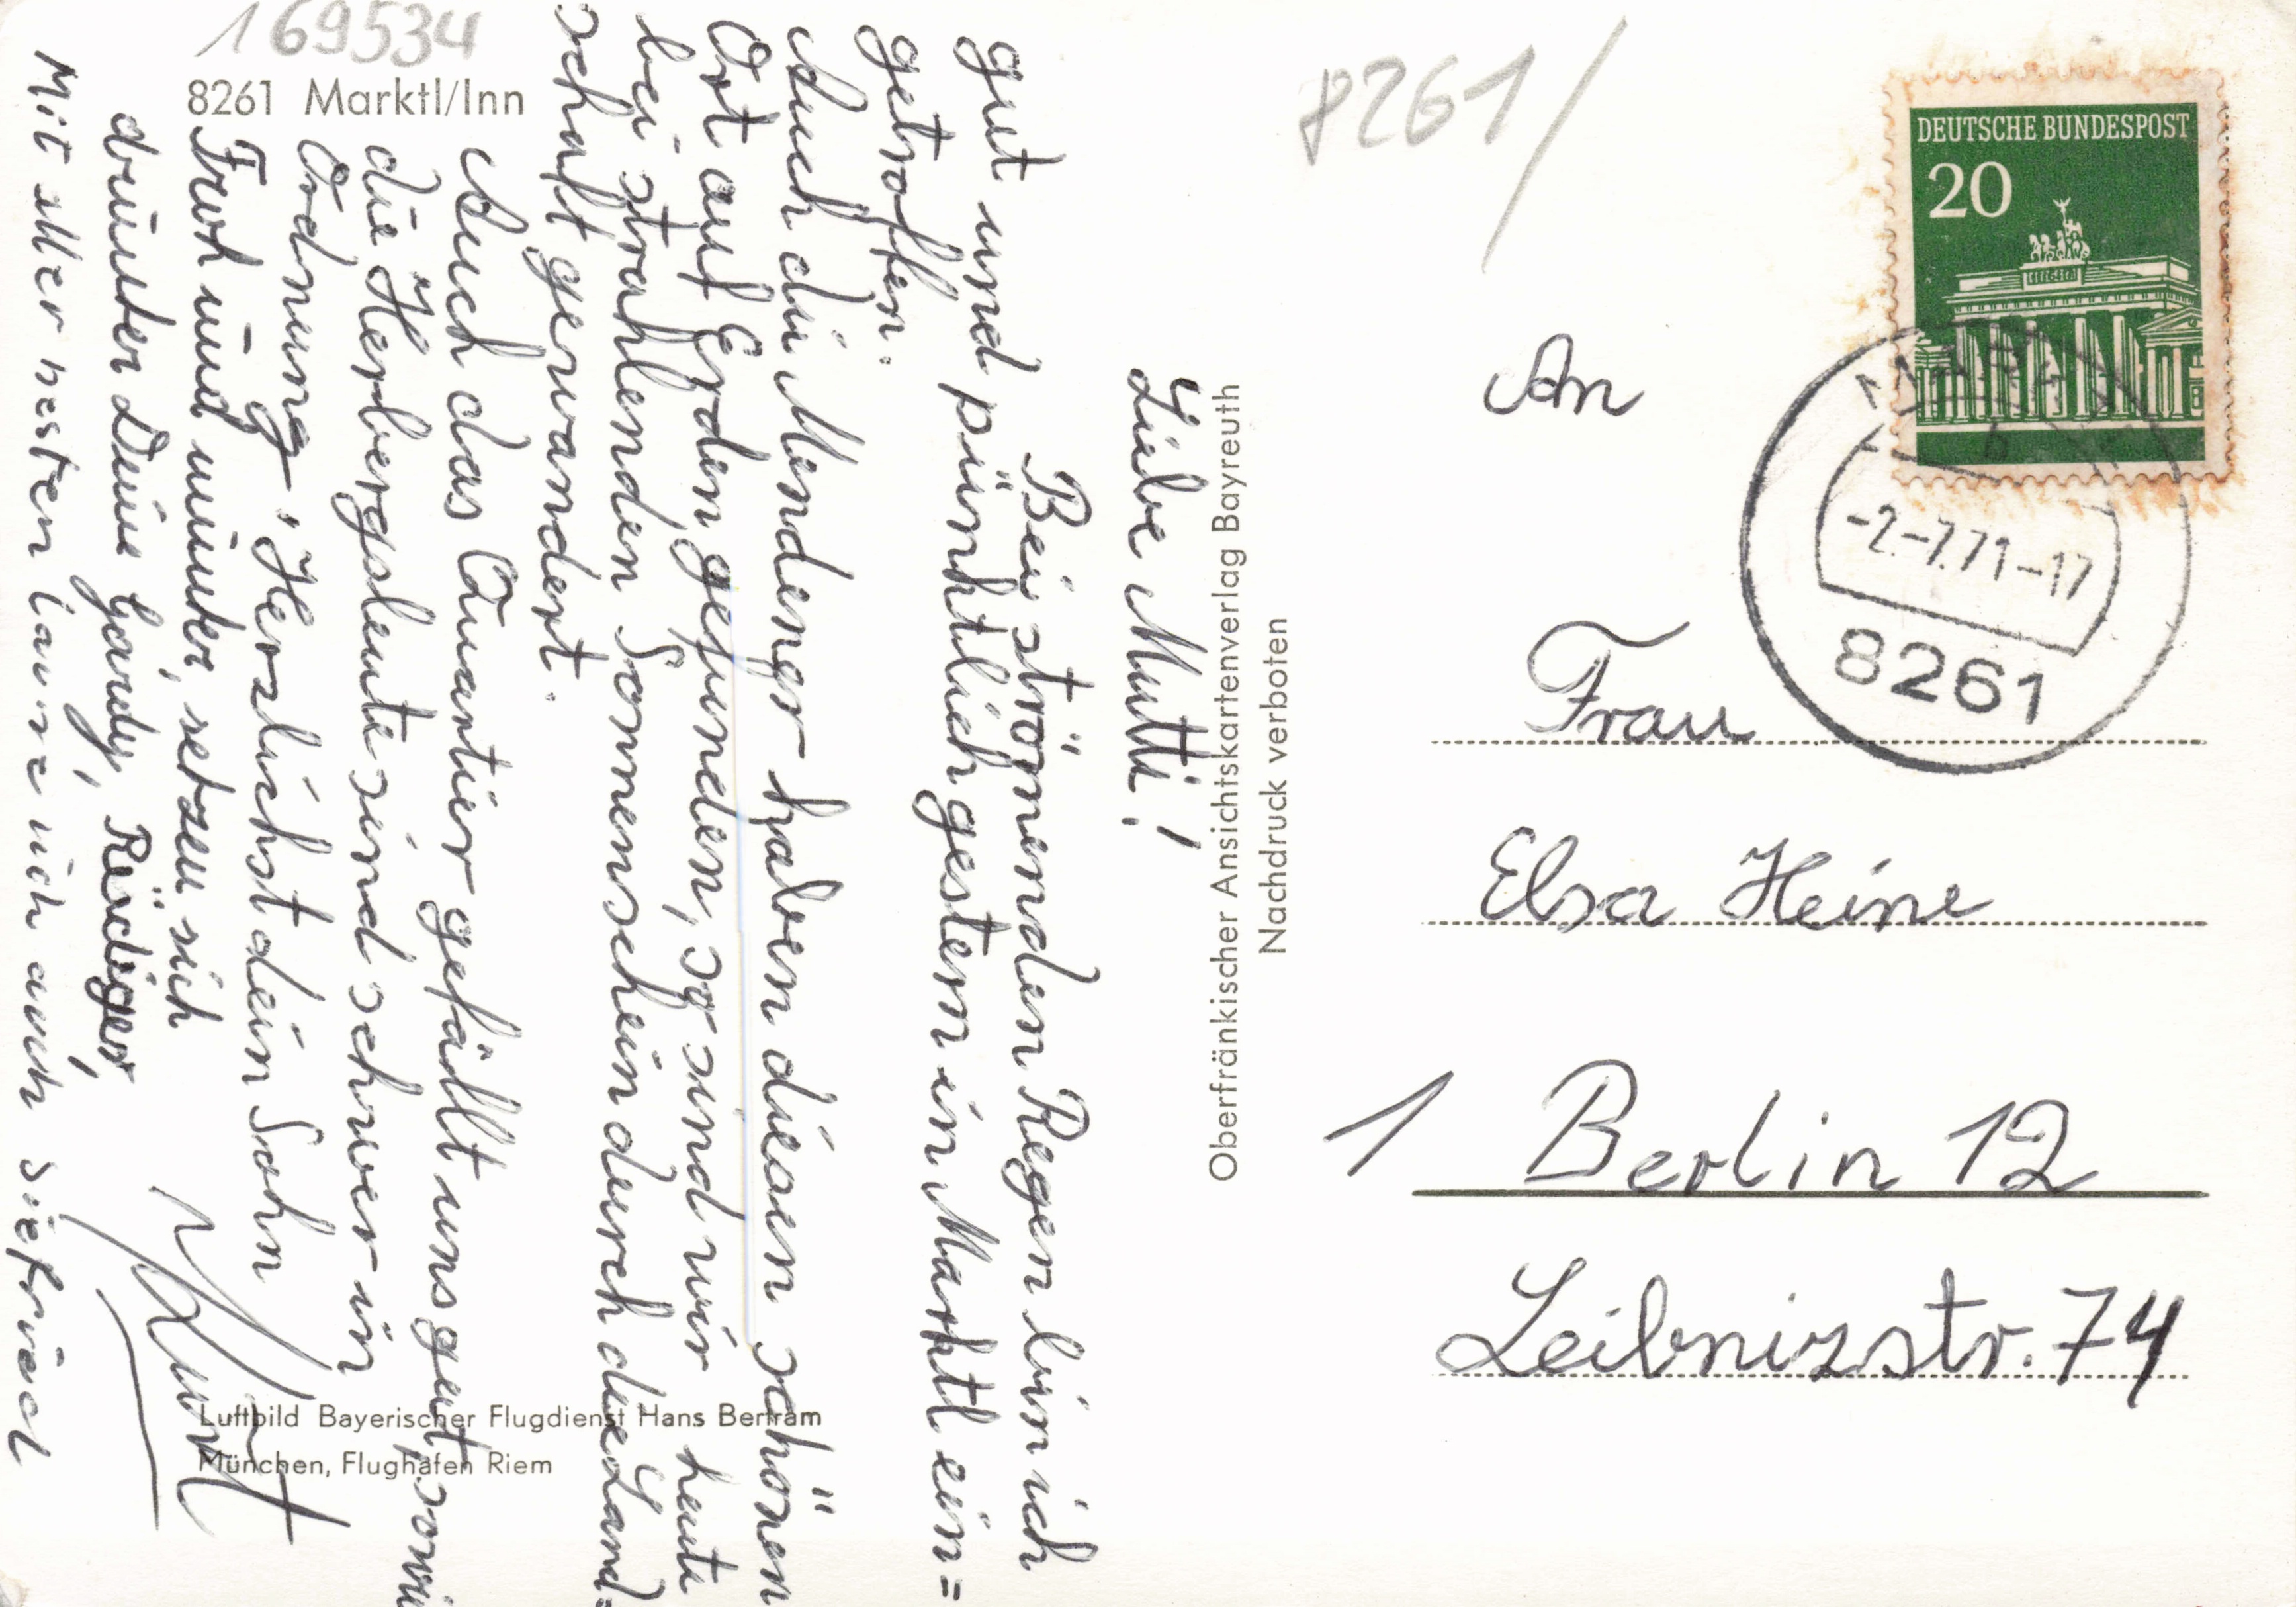 169534
8261 Marktl/Inn
Liebe Mutti!
Bei strömenden Regen bin ich
gut und pünktlich gestern in Marktl ein=
getroffen.
Auch die Mendener haben diesen schönen
Ort auf Erden gefunden, so sind wir heute
bei strahlenden Sonnenschein durch die Land=
schaft gewandert.
Auch das Quartier gefällt uns gut, sowie
die Herbergsleute sind schwer in
Ordnung, Herzlichst dein Sohn
Kurt
Froh und munter, setzen sich
drunter Deine Gardy, Rüdiger,
Mit aller besten Laune ich auch Siefried
Luftbild Bayerischer Flugdienst Hans Bertram
München, Flughafen Riem
Oberfränkischer Ansichtskartenverlag Bayreuth
Nachdruck verboten
8261/
DEUTSCHE BUNDESPOST
20
b
-2.-7.71-17
8261
An
Frau
Elsa Heine
1 Berlin 12
Leibnizstr. 74